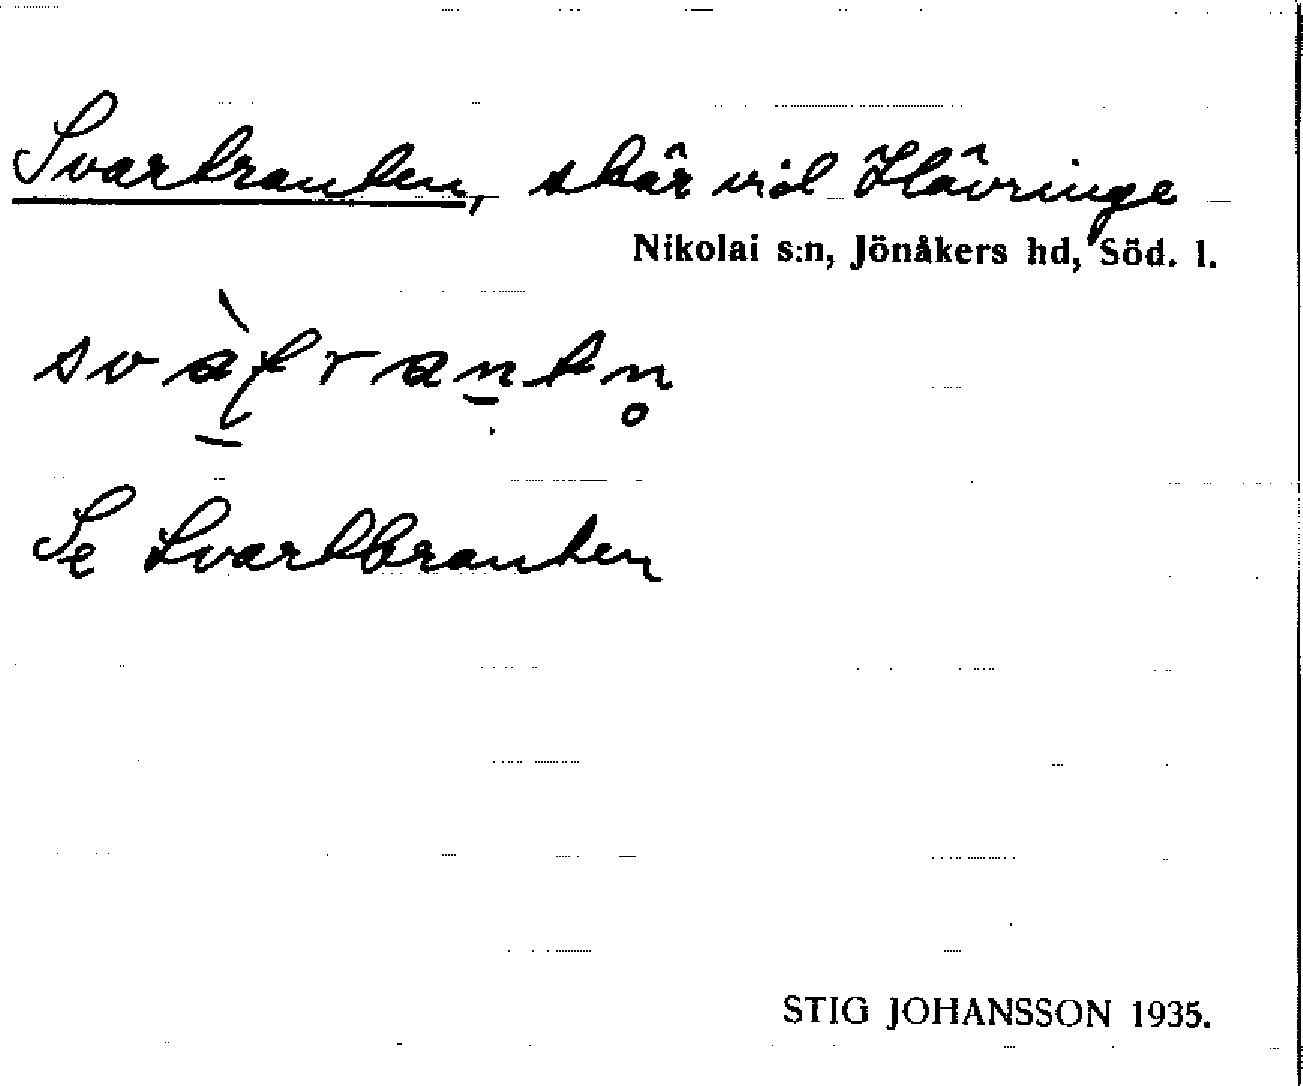 Svartranten, skär vid Hävringe
Nikolai s:n, Jönåkers hd, Söd. l.
Se Svartbranten
STIG JOHANSSON 1935.